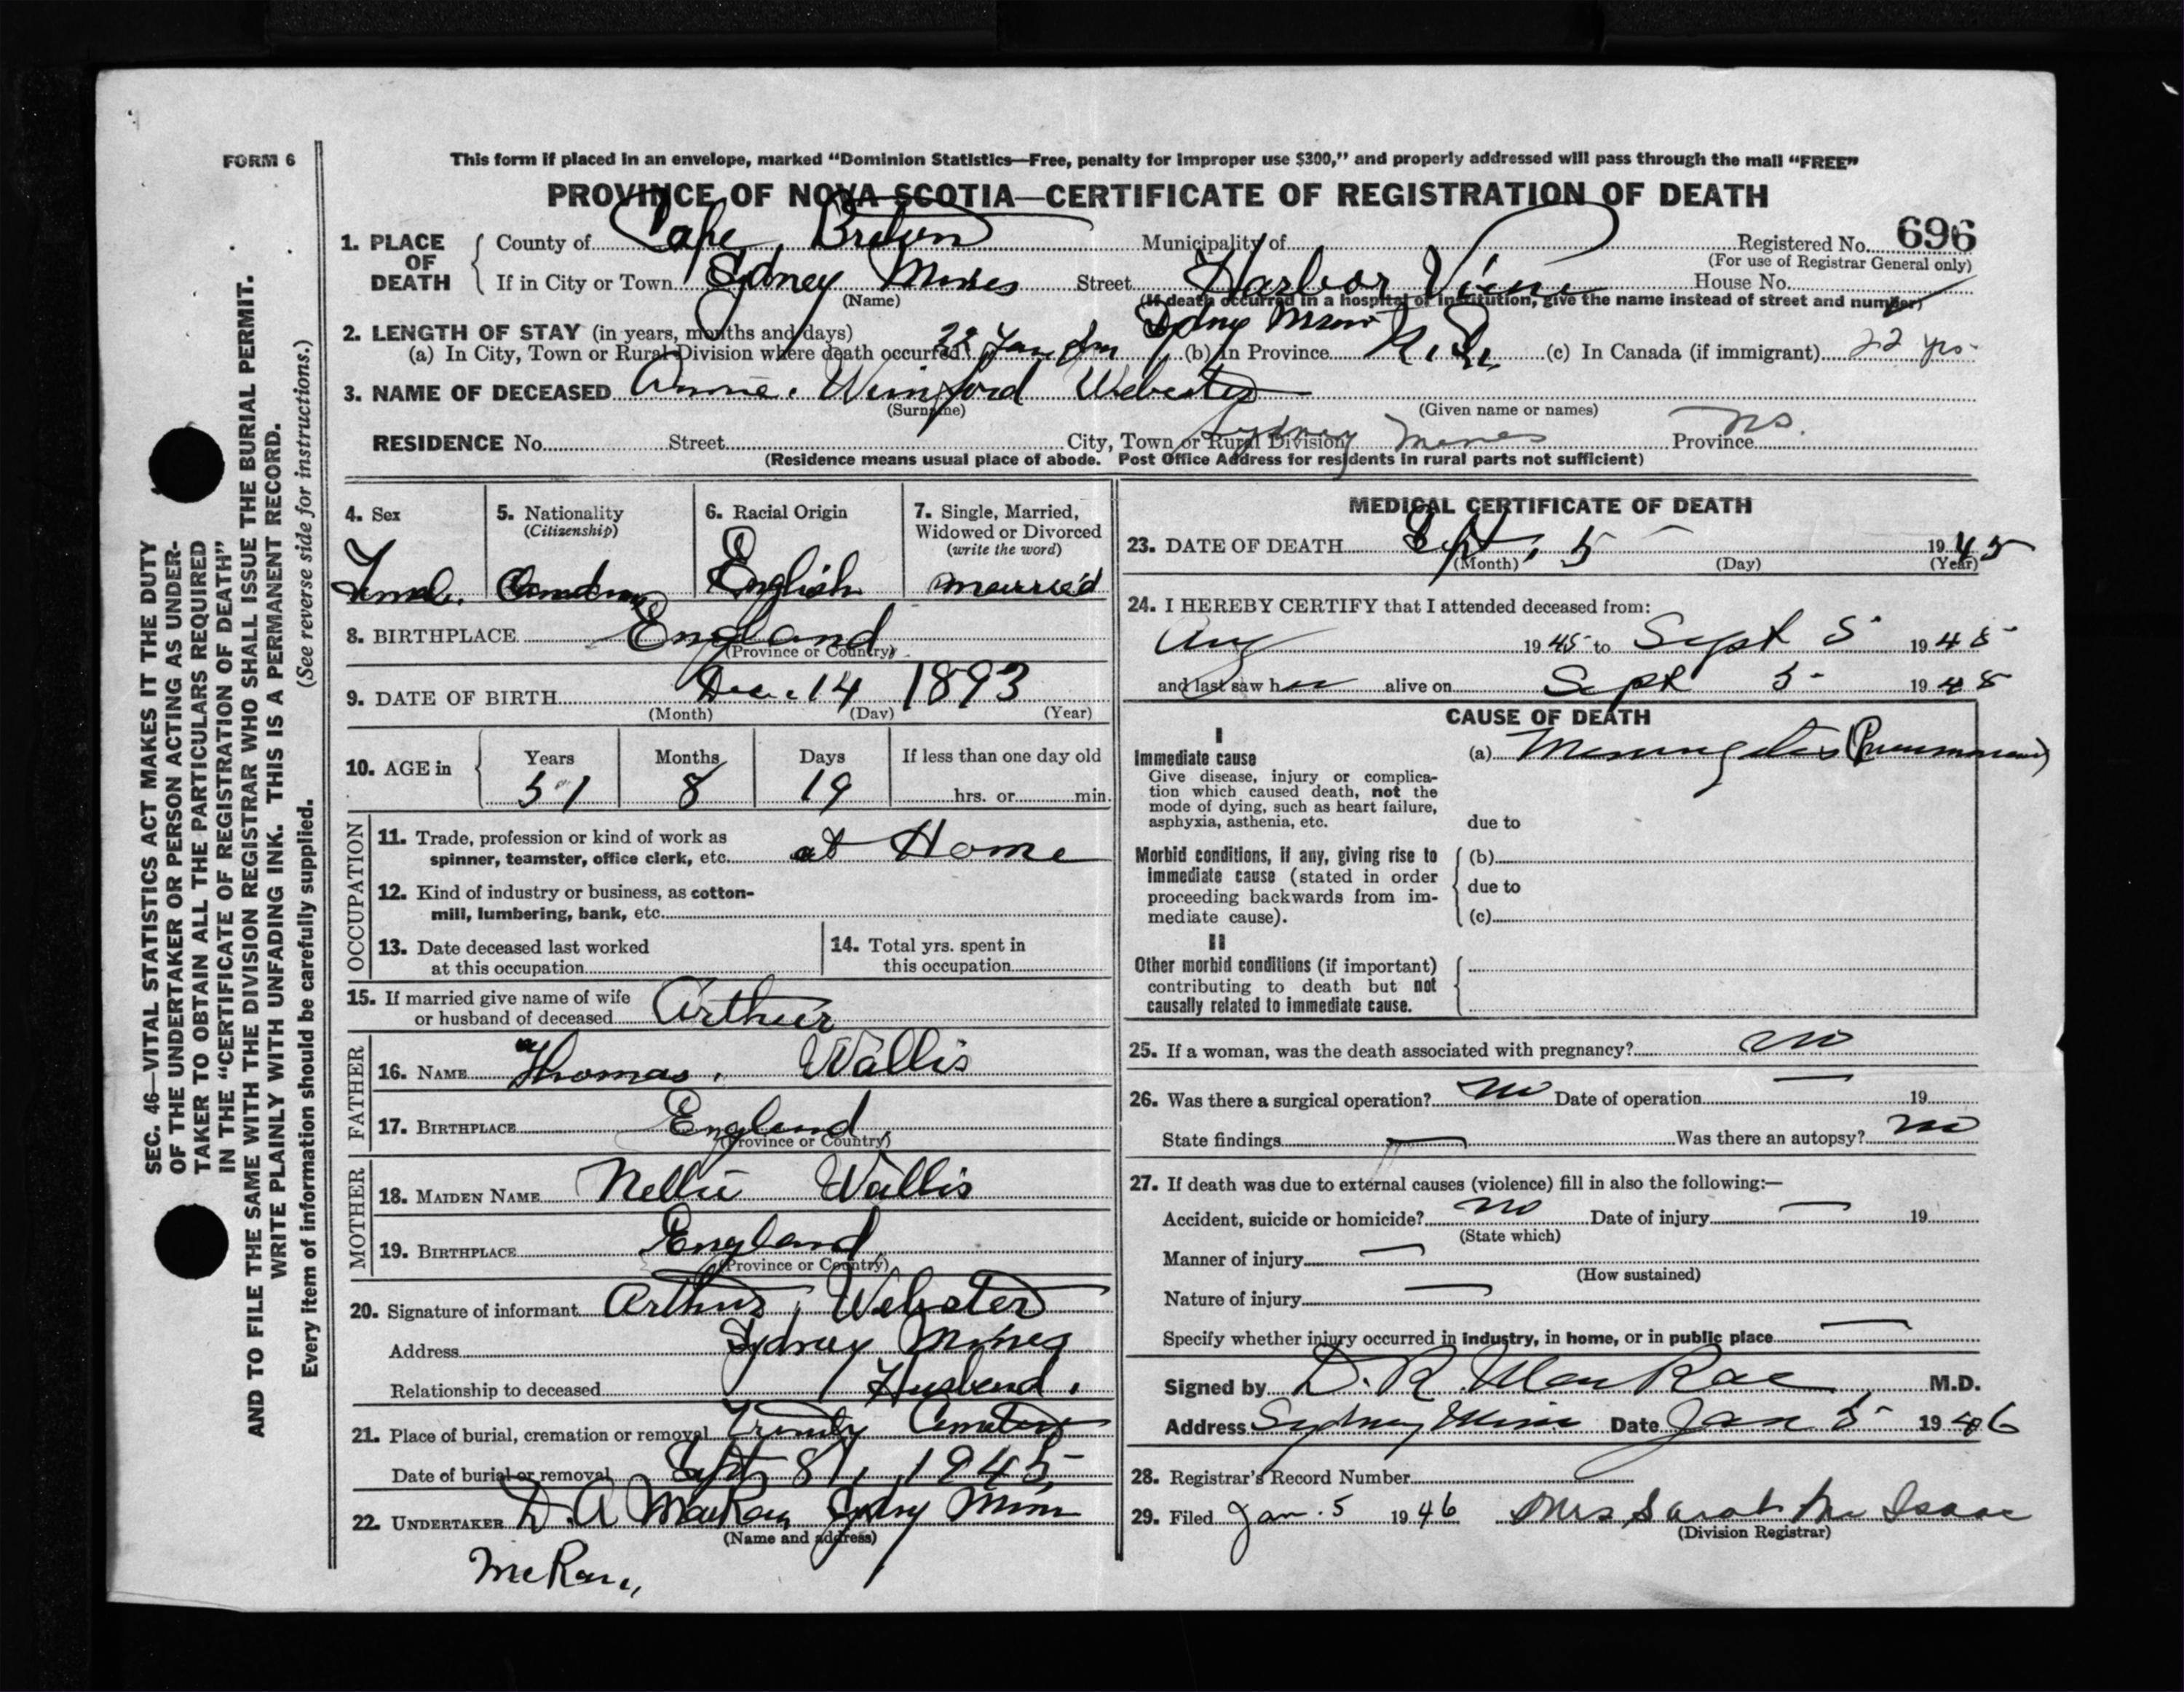 FORM 6
This form if placed in an envelope, marked “Dominion Statistics—Free, penalty for improper use $300,” and properly addressed will pass through the mail “FREE”
PROVINCE OF NOVA SCOTIA—CERTIFICATE OF REGISTRATION OF DEATH
1. PLACE OF DEATH
County of Cape Breton Municipality of Registered No. 696
(For use of Registrar General only)
If in City or Town Sydney Mines Street Harbor View House No.
(Name) (If death occurred in a hospital or institution, give the name instead of street and number)
2. LENGTH OF STAY (in years, months and days) Sydney Mines
(a) In City, Town or Rural Division where death occurred 22 (b) In Province N.S. (c) In Canada (if immigrant) 22 yrs.
3. NAME OF DECEASED Annie. Winiford Webster
(Surname) (Given name or names)
RESIDENCE No. Street City, Town or Rural Division Sydney Mines Province NS.
(Residence means usual place of abode. Post Office Address for residents in rural parts not sufficient)
4. Sex
Female.
5. Nationality
(Citizenship)
Canadian
6. Racial Origin
English
7. Single, Married,
Widowed or Divorced
(write the word)
married
8. BIRTHPLACE England
(Province or Country)
9. DATE OF BIRTH Dec. 14 1893
(Month) (Day) (Year)
10. AGE in
Years Months Days If less than one day old
51 8 19 hrs. or min.
OCCUPATION
11. Trade, profession or kind of work as
spinner, teamster, office clerk, etc. at Home
12. Kind of industry or business, as cotton-
mill, lumbering, bank, etc.
13. Date deceased last worked
at this occupation
14. Total yrs. spent in
this occupation
15. If married give name of wife
or husband of deceased Arthur
FATHER
16. NAME Thomas. Wallis
17. BIRTHPLACE England
(Province or Country)
MOTHER
18. MAIDEN NAME Nellie Wallis
19. BIRTHPLACE England
(Province or Country)
20. Signature of informant Arthur Webster
Address Sydney Mines
Relationship to deceased Husband.
21. Place of burial, cremation or removal Trinity Cemetery
Date of burial or removal Sept 8, 1945
22. UNDERTAKER D. A MacRae Sydney Mines
(Name and address)
MEDICAL CERTIFICATE OF DEATH
23. DATE OF DEATH Sept, 5 1945
(Month) (Day) (Year)
24. I HEREBY CERTIFY that I attended deceased from:
Aug 1945 to Sept 5 1945
and last saw her alive on Sept 5 1945
CAUSE OF DEATH
I
Immediate cause
Give disease, injury or complica-
tion which caused death, not the
mode of dying, such as heart failure,
asphyxia, asthenia, etc.
(a) Meningitis
due to
Morbid conditions, if any, giving rise to
immediate cause (stated in order
proceeding backwards from im-
mediate cause).
(b)
due to
(c)
II
Other morbid conditions (if important)
contributing to death but not
causally related to immediate cause.
25. If a woman, was the death associated with pregnancy? no
26. Was there a surgical operation? no Date of operation — 19
State findings — Was there an autopsy? no
27. If death was due to external causes (violence) fill in also the following:—
Accident, suicide or homicide? no Date of injury — 19
(State which)
Manner of injury —
(How sustained)
Nature of injury —
Specify whether injury occurred in industry, in home, or in public place —
Signed by D. R. MacRae M.D.
Address Sydney Mines Date Jan 5 1946
28. Registrar's Record Number
29. Filed Jan. 5 1946 Mrs Sarah Mc Isaac
(Division Registrar)
SEC. 46—VITAL STATISTICS ACT MAKES IT THE DUTY
OF THE UNDERTAKER OR PERSON ACTING AS UNDER-
TAKER TO OBTAIN ALL THE PARTICULARS REQUIRED
IN THE “CERTIFICATE OF REGISTRATION OF DEATH”
AND TO FILE THE SAME WITH THE DIVISION REGISTRAR WHO SHALL ISSUE THE BURIAL PERMIT.
WRITE PLAINLY WITH UNFADING INK. THIS IS A PERMANENT RECORD.
Every item of information should be carefully supplied. (See reverse side for instructions.)